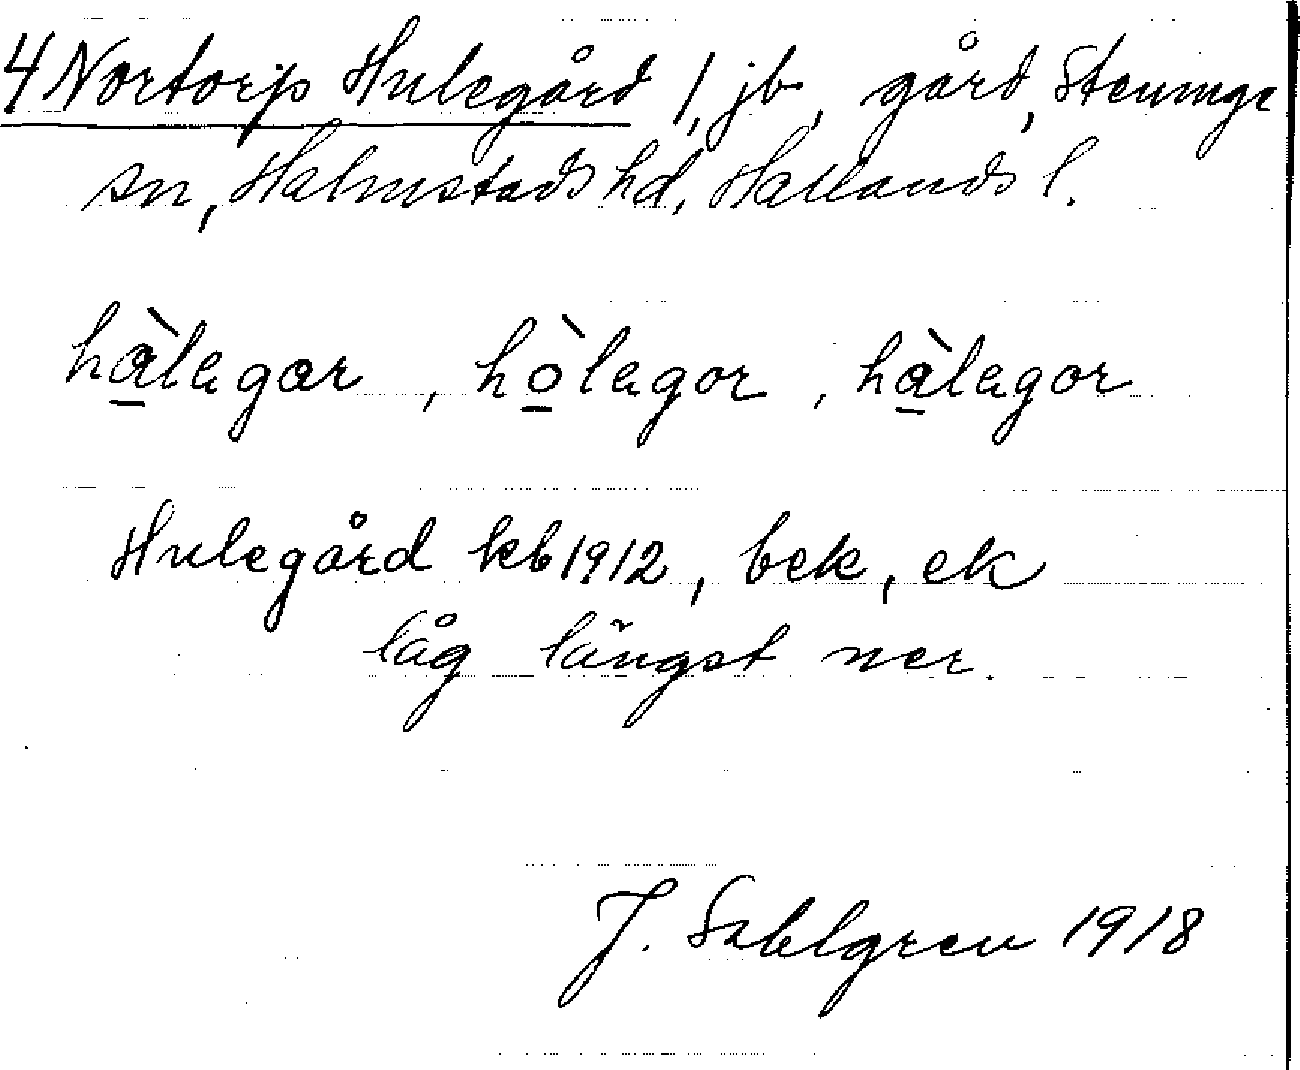 4 Nortorp Hulegård 1, jb, gård, Steninge
sn, Halmstads hd, Hallands l.
hàlagar, hòlagor, hàlagor
Hulegård kb 1912, bek, ek
låg längst ner.
J. Sahlgren 1918